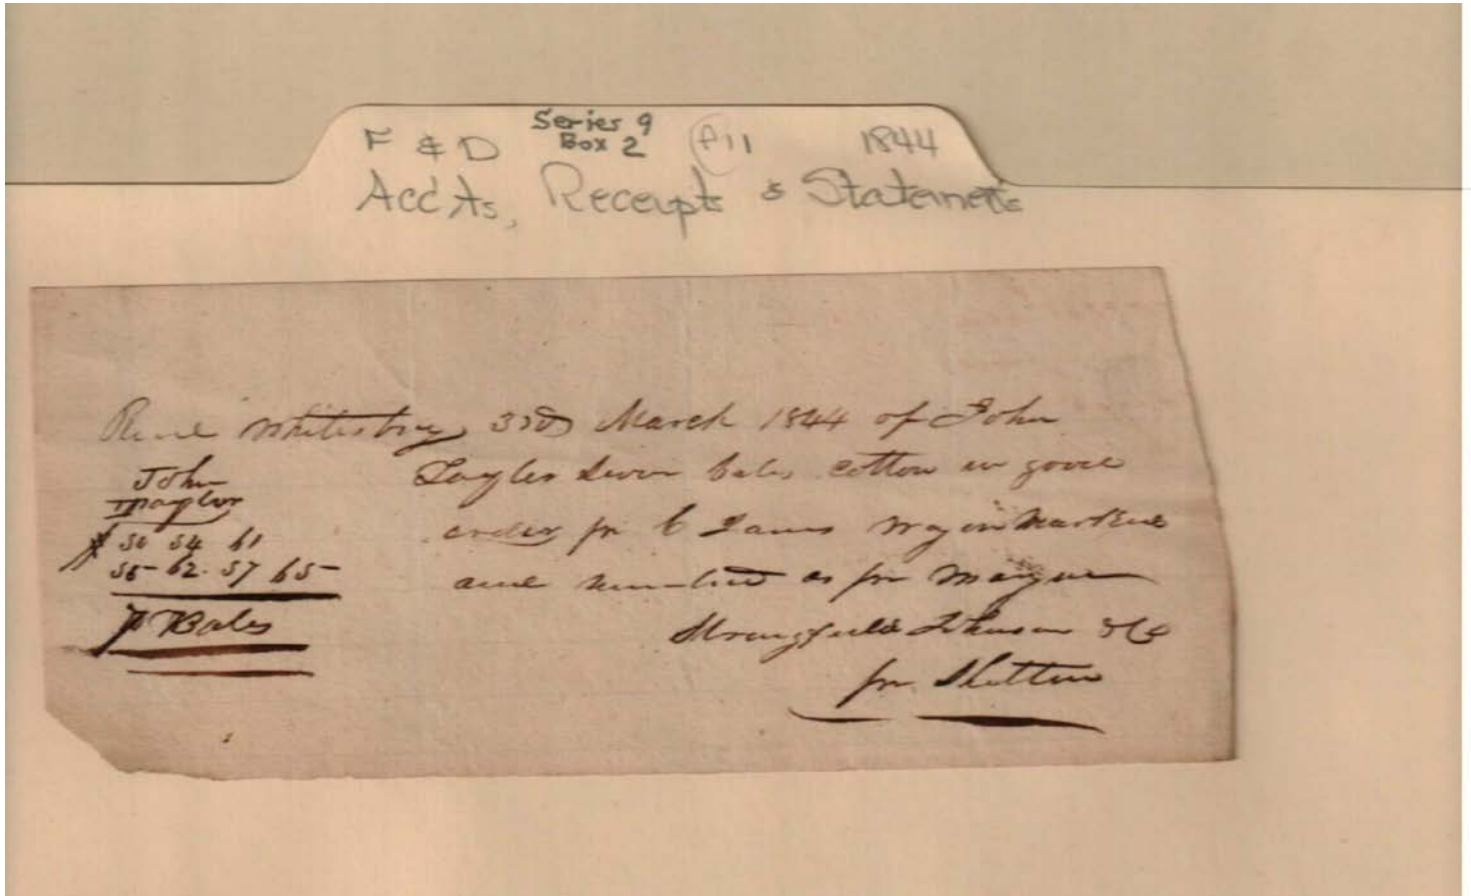 F & D Series 9 Box 2 f11 1844
Acc'ts, Receipts & Statements
Whitesburg 3rd March 1844 of John
Taylor Seven bales cotton in good
order pr waggon Marked
and numbered as pr Margin
Johnson & Co
pr Shelton
John
Taylor
50 54 61
55 62. 57 65
7 Bales